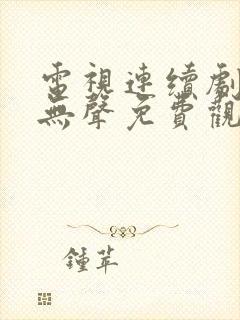 電視連續劇
無聲免費觀
鍾苹